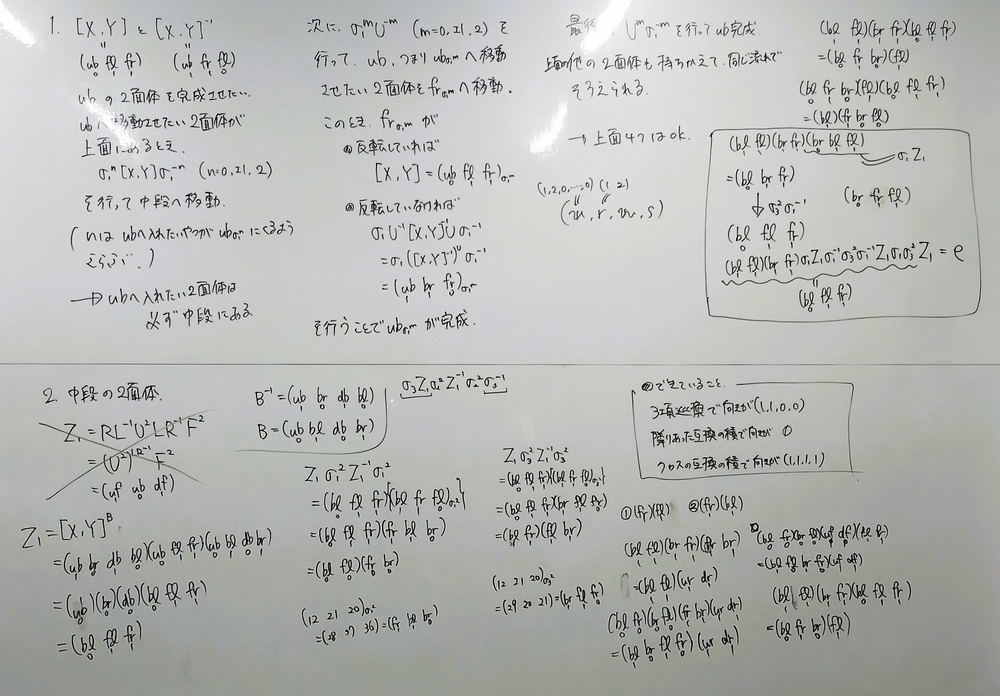 1. [X,Y] と [X,Y]⁻¹
(ub fl fr) (ub fr fl)
ubの2面体を完成させたい.
ubへ移動させたい2面体が
上面にあるとき.
σ₁ⁿ[X,Y]σ₁⁻ⁿ (n=0,±1,2)
を行って中段へ移動.
(nはubへ入れたいやつがubσ₁ⁿにくるよう
えらぶ.)
→ ubへ入れたい2面体は
必ず中段にある
次に. σ₁ᵐU⁻ᵐ (m=0,±1,2) を
行って. ub, つまり ubσ₁ᵐへ移動
させたい2面体をfrσ₁ᵐへ移動.
このとき. frσ₁ᵐが
反転していれば
[X,Y]=(ub fl fr)σ₁ᵐ
反転していなければ
σ₁U⁻¹[X,Y]⁻¹Uσ₁⁻¹
=σ₁([X,Y]⁻¹)ᵁσ₁⁻¹
=(ub br fr)σ₁ᵐ
を行うことでubσ₁ᵐが完成.
Uᵐσ₁⁻ᵐを行ってub完成.
上面の他の2面体も持ちかえて. 同じ流れで
そろえられる.
→上面4つはok.
(1,2,0,…,0) (1 2)
(bl fl)(br fr)(bl fl fr)
=(bl fr br)(fl)
(bl fr br)(fl)(bl fl fr)
=(bl)(fr br fl)
(bl fl)(br fr)(br bl fl)
σ₁Z₁
=(bl br fr)
(br fr fl)
↓σ₃²σ₁⁻¹
(bl fl fr)
(bl fl)(br fr)σ₁Z₁σ₁⁻¹σ₃²σ₁⁻¹Z₁σ₁σ₃²Z₁=e
(bl fl fr)
2. 中段の2面体.
Z₁=RL⁻¹U²LR⁻¹F²
=(U²)ᴸᴿ⁻¹F²
=(uf ub df)
Z₁=[X,Y]ᴮ
=(ub br db bl)(ub fl fr)(ub bl db br)
=(ub)(br)(db)(bl fl fr)
=(bl fl fr)
B⁻¹=(ub br db bl)
B=(ub bl db br)
σ₃Z₁σ₂²Z₁⁻¹σ₂²σ₃⁻¹
Z₁σ₁²Z₁⁻¹σ₁²
=(bl fl fr){(bl fr fl)σ₁²}
=(bl fl fr)(fr bl br)
=(bl fl)(fr br)
(12 21 20)σ₁²
Z₁σ₃²Z₁⁻¹σ₃²
=(bl fl fr){(bl fr fl)σ₃²}
=(bl fl fr)(br fl fr)
=(bl fr)(fl br)
(12 21 20)σ₃²
=(29 20 21)=(br fl fr)
できていること.
3項巡換で向きが(1,1,0,0)
隣りあった互換の積で向きが 0
クロスの互換の積で向きが(1,1,1,1)
①(fr)(fl) ②(fr)(bl)
(bl fl)(br fr)(fr br)
=(bl fl)(ur dr)
(bl fr)(br fl)(fr br)(ur dr)
=(bl br fl fr)(ur dr)
(bl fr)(br fl)(uf df)(fl fr)
=(bl fl br fr)(uf df)
(bl fl)(br fr)(bl fl fr)
=(bl fr br)(fl)